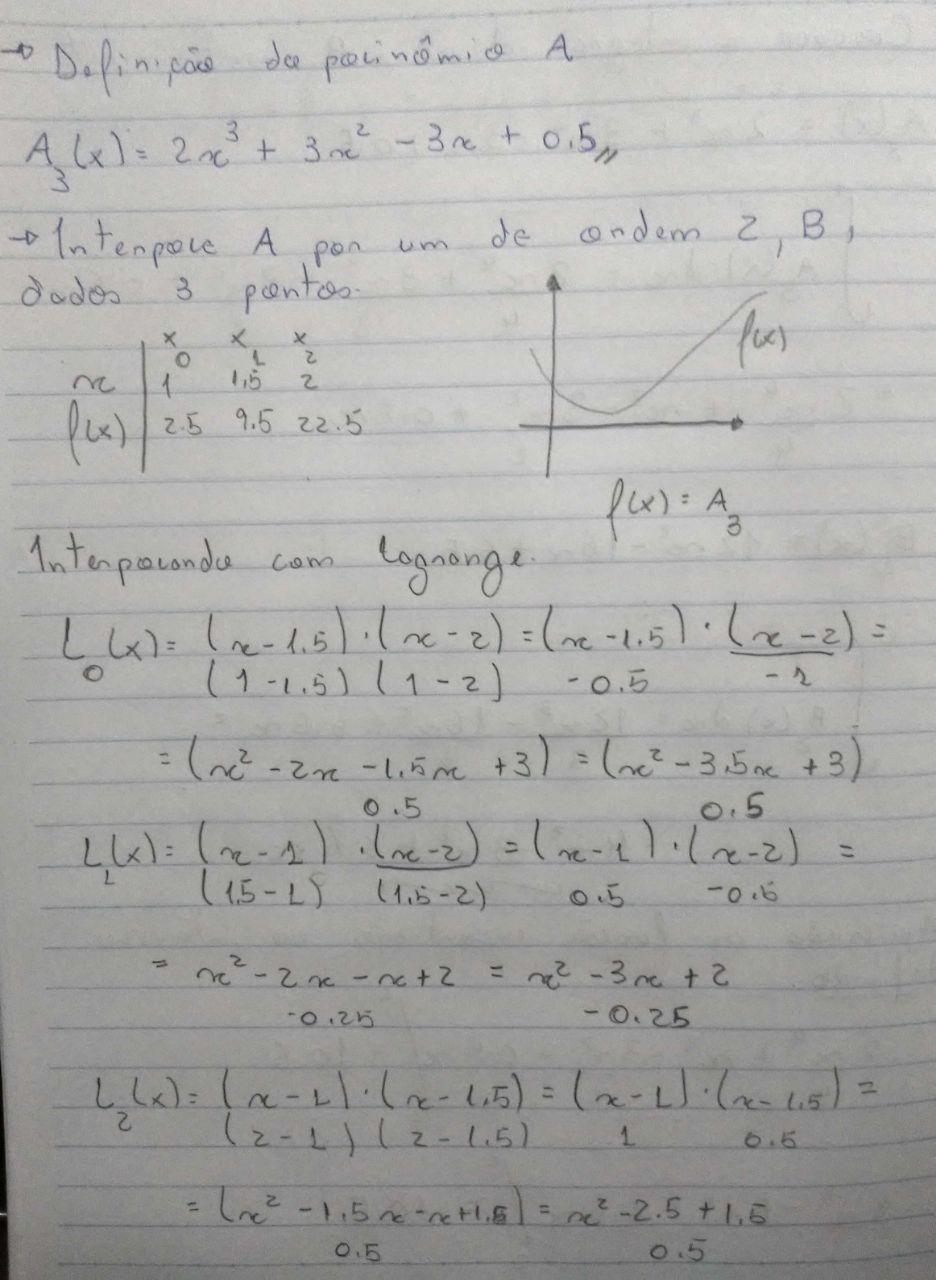 → Definição do polinômio A
A₃(x) = 2x³ + 3x² - 3x + 0.5,,
→ Interpole A por um de ordem 2, B,
dados 3 pontos.
x₀ x₁ x₂
x 1 1,5 2
f(x) 2.5 9.5 22.5
f(x)
f(x) = A₃
Interpolando com Lagrange.
L₀(x) = (x-1.5)·(x-2) = (x-1.5)·(x-2) =
(1-1.5)(1-2) -0.5 -1
= (x² - 2x - 1,5x + 3) = (x² - 3.5x + 3)
0.5 0.5
L₁(x) = (x-1)·(x-2) = (x-1)·(x-2) =
(1.5-1) (1.5-2) 0.5 -0.5
= x² - 2x - x + 2 = x² - 3x + 2
-0.25 -0.25
L₂(x) = (x-1)·(x-1,5) = (x-1)·(x-1.5) =
(2-1)(2-1.5) 1 0.5
= (x² - 1,5x - x + 1.5) = x² - 2.5 + 1.5
0.5 0.5